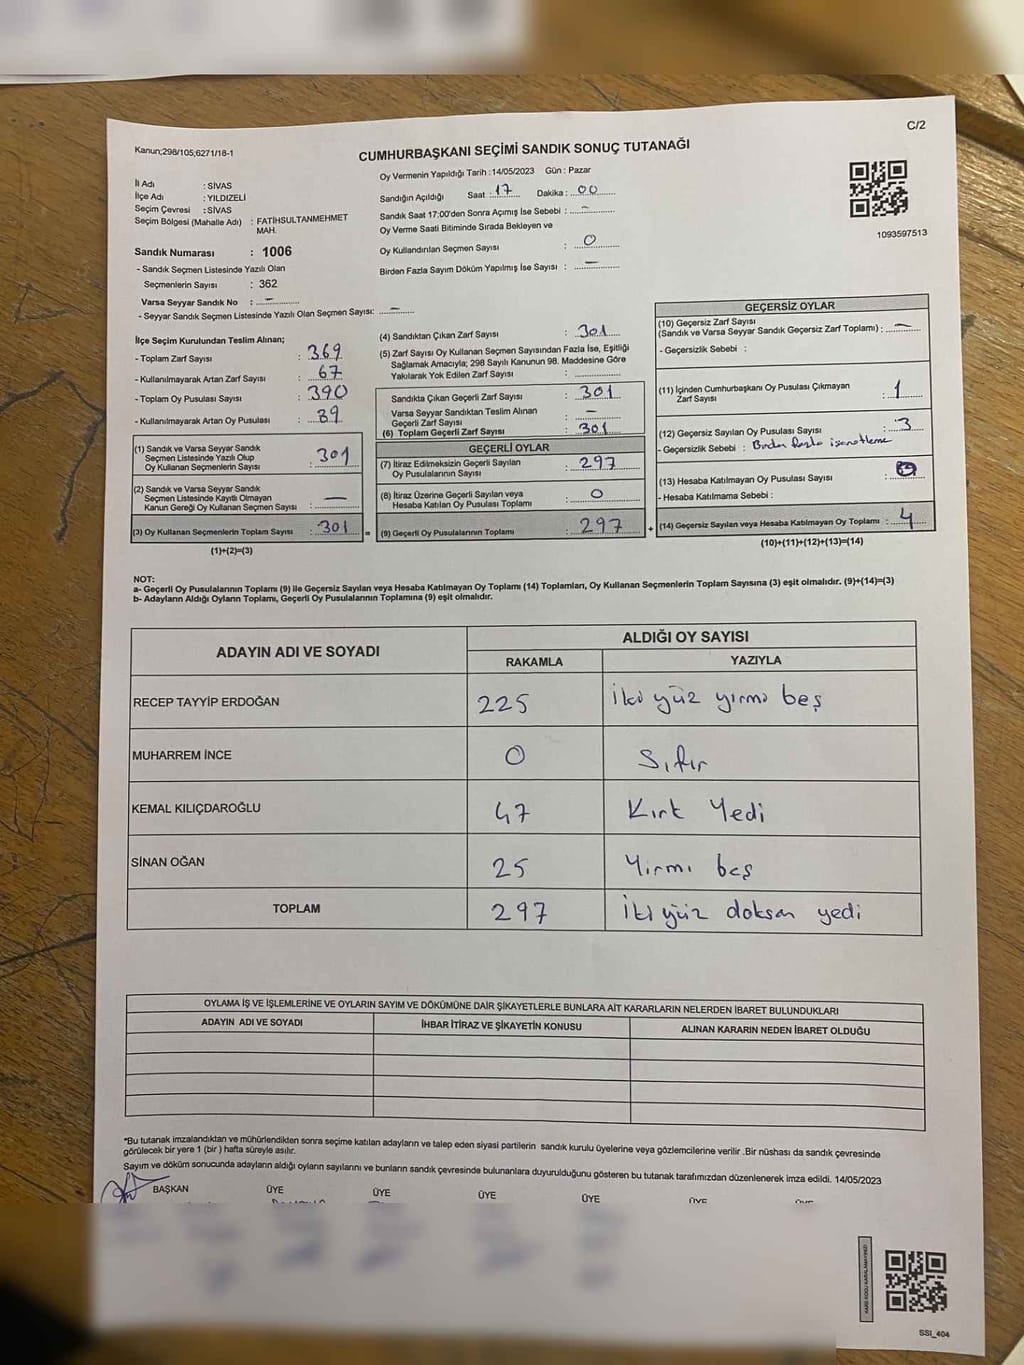 C/2
Kanun;298/105;6271/18-1
CUMHURBAŞKANI SEÇİMİ SANDIK SONUÇ TUTANAĞI
İl Adı : SİVAS
İlçe Adı : YILDIZELİ
Seçim Çevresi : SİVAS
Seçim Bölgesi (Mahalle Adı) : FATİHSULTANMEHMET MAH.
Sandık Numarası : 1006
- Sandık Seçmen Listesinde Yazılı Olan
Seçmenlerin Sayısı : 362
Varsa Seyyar Sandık No : –
- Seyyar Sandık Seçmen Listesinde Yazılı Olan Seçmen Sayısı: –
Oy Vermenin Yapıldığı Tarih :14/05/2023 Gün : Pazar
Sandığın Açıldığı Saat : 17 Dakika : 00
Sandık Saat 17:00'den Sonra Açımış İse Sebebi : –
Oy Verme Saati Bitiminde Sırada Bekleyen ve
Oy Kullandırılan Seçmen Sayısı : 0
Birden Fazla Sayım Döküm Yapılmış İse Sayısı : –
1093597513
İlçe Seçim Kurulundan Teslim Alınan;
- Toplam Zarf Sayısı : 369
- Kullanılmayarak Artan Zarf Sayısı : 67
- Toplam Oy Pusulası Sayısı : 390
- Kullanılmayarak Artan Oy Pusulası : 89
(1) Sandık ve Varsa Seyyar Sandık
Seçmen Listesinde Yazılı Olup
Oy Kullanan Seçmenlerin Sayısı : 301
(2) Sandık ve Varsa Seyyar Sandık
Seçmen Listesinde Kayıtlı Olmayan
Kanun Gereği Oy Kullanan Seçmen Sayısı : –
(3) Oy Kullanan Seçmenlerin Toplam Sayısı : 301 =
(1)+(2)=(3)
(4) Sandıktan Çıkan Zarf Sayısı : 301
(5) Zarf Sayısı Oy Kullanan Seçmen Sayısından Fazla İse, Eşitliği
Sağlamak Amacıyla; 298 Sayılı Kanunun 98. Maddesine Göre
Yakılarak Yok Edilen Zarf Sayısı :
Sandıkta Çıkan Geçerli Zarf Sayısı : 301
Varsa Seyyar Sandıktan Teslim Alınan
Geçerli Zarf Sayısı : –
(6) Toplam Geçerli Zarf Sayısı : 301
GEÇERLİ OYLAR
(7) İtiraz Edilmeksizin Geçerli Sayılan
Oy Pusulalarının Sayısı : 297
(8) İtiraz Üzerine Geçerli Sayılan veya
Hesaba Katılan Oy Pusulası Toplamı : 0
(9) Geçerli Oy Pusulalarının Toplamı : 297 +
GEÇERSİZ OYLAR
(10) Geçersiz Zarf Sayısı
(Sandık ve Varsa Seyyar Sandık Geçersiz Zarf Toplamı) : –
- Geçersizlik Sebebi :
(11) İçinden Cumhurbaşkanı Oy Pusulası Çıkmayan
Zarf Sayısı : 1
(12) Geçersiz Sayılan Oy Pusulası Sayısı : 3
- Geçersizlik Sebebi : Birden fazla işaretleme
(13) Hesaba Katılmayan Oy Pusulası Sayısı :
- Hesaba Katılmama Sebebi :
(14) Geçersiz Sayılan veya Hesaba Katılmayan Oy Toplamı : 4
(10)+(11)+(12)+(13)=(14)
NOT:
a- Geçerli Oy Pusulalarının Toplamı (9) ile Geçersiz Sayılan veya Hesaba Katılmayan Oy Toplamı (14) Toplamları, Oy Kullanan Seçmenlerin Toplam Sayısına (3) eşit olmalıdır. (9)+(14)=(3)
b- Adayların Aldığı Oyların Toplamı, Geçerli Oy Pusulalarının Toplamına (9) eşit olmalıdır.
ADAYIN ADI VE SOYADI ALDIĞI OY SAYISI
RAKAMLA YAZIYLA
RECEP TAYYİP ERDOĞAN 225 İki yüz yirmi beş
MUHARREM İNCE 0 Sıfır
KEMAL KILIÇDAROĞLU 47 Kırk Yedi
SİNAN OĞAN 25 Yirmi beş
TOPLAM 297 İki yüz doksan yedi
OYLAMA İŞ VE İŞLEMLERİNE VE OYLARIN SAYIM VE DÖKÜMÜNE DAİR ŞİKAYETLERLE BUNLARA AİT KARARLARIN NELERDEN İBARET BULUNDUKLARI
ADAYIN ADI VE SOYADI İHBAR İTİRAZ VE ŞİKAYETİN KONUSU ALINAN KARARIN NEDEN İBARET OLDUĞU
*Bu tutanak imzalandıktan ve mühürlendikten sonra seçime katılan adayların ve talep eden siyasi partilerin sandık kurulu üyelerine veya gözlemcilerine verilir .Bir nüshası da sandık çevresinde
görülecek bir yere 1 (bir ) hafta süreyle asılır.
Sayım ve döküm sonucunda adayların aldığı oyların sayılarını ve bunların sandık çevresinde bulunanlara duyurulduğunu gösteren bu tutanak tarafımızdan düzenlenerek imza edildi. 14/05/2023
BAŞKAN ÜYE ÜYE ÜYE ÜYE ÜYE ÜYE
SSI_404